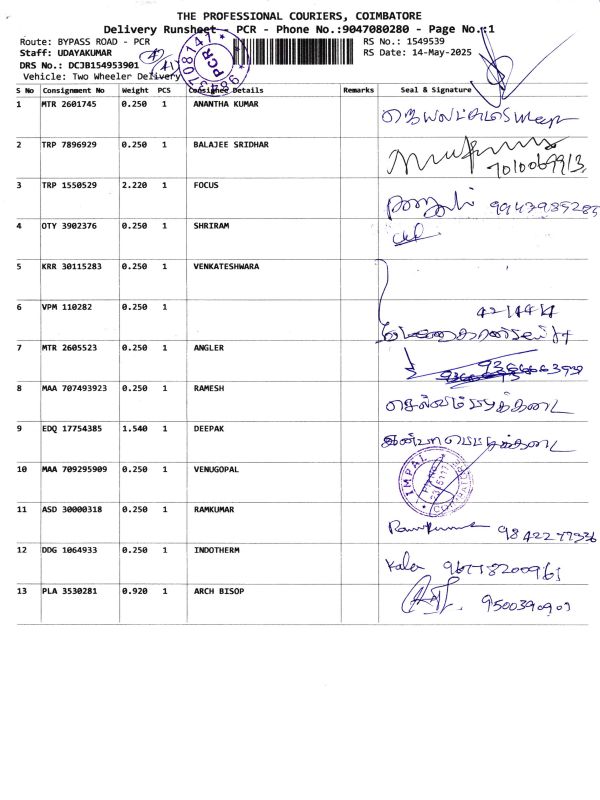 THE PROFESSIONAL COURIERS, COIMBATORE
Delivery Runsheet - PCR - Phone No.:9047080280 - Page No.:1
Route: BYPASS ROAD - PCR
RS No.: 1549539
Staff: UDAYAKUMAR
RS Date: 14-May-2025
DRS No.: DCJB154953901
Vehicle: Two Wheeler Delivery
PCR
S No Consignment No Weight PCS Consignee Details Remarks Seal & Signature
1 MTR 2601745 0.250 1 ANANTHA KUMAR
2 TRP 7896929 0.250 1 BALAJEE SRIDHAR
7010069913
3 TRP 1550529 2.220 1 FOCUS
9943985285
4 OTY 3902376 0.250 1 SHRIRAM
5 KRR 30115283 0.250 1 VENKATESHWARA
6 VPM 110282 0.250 1
7 MTR 2605523 0.250 1 ANGLER
8 MAA 707493923 0.250 1 RAMESH
9 EDQ 17754385 1.540 1 DEEPAK
10 MAA 709295909 0.250 1 VENUGOPAL
IMPAL
11 ASD 30000318 0.250 1 RAMKUMAR
Ramkumar
12 DDG 1064933 0.250 1 INDOTHERM
13 PLA 3530281 0.920 1 ARCH BISOP